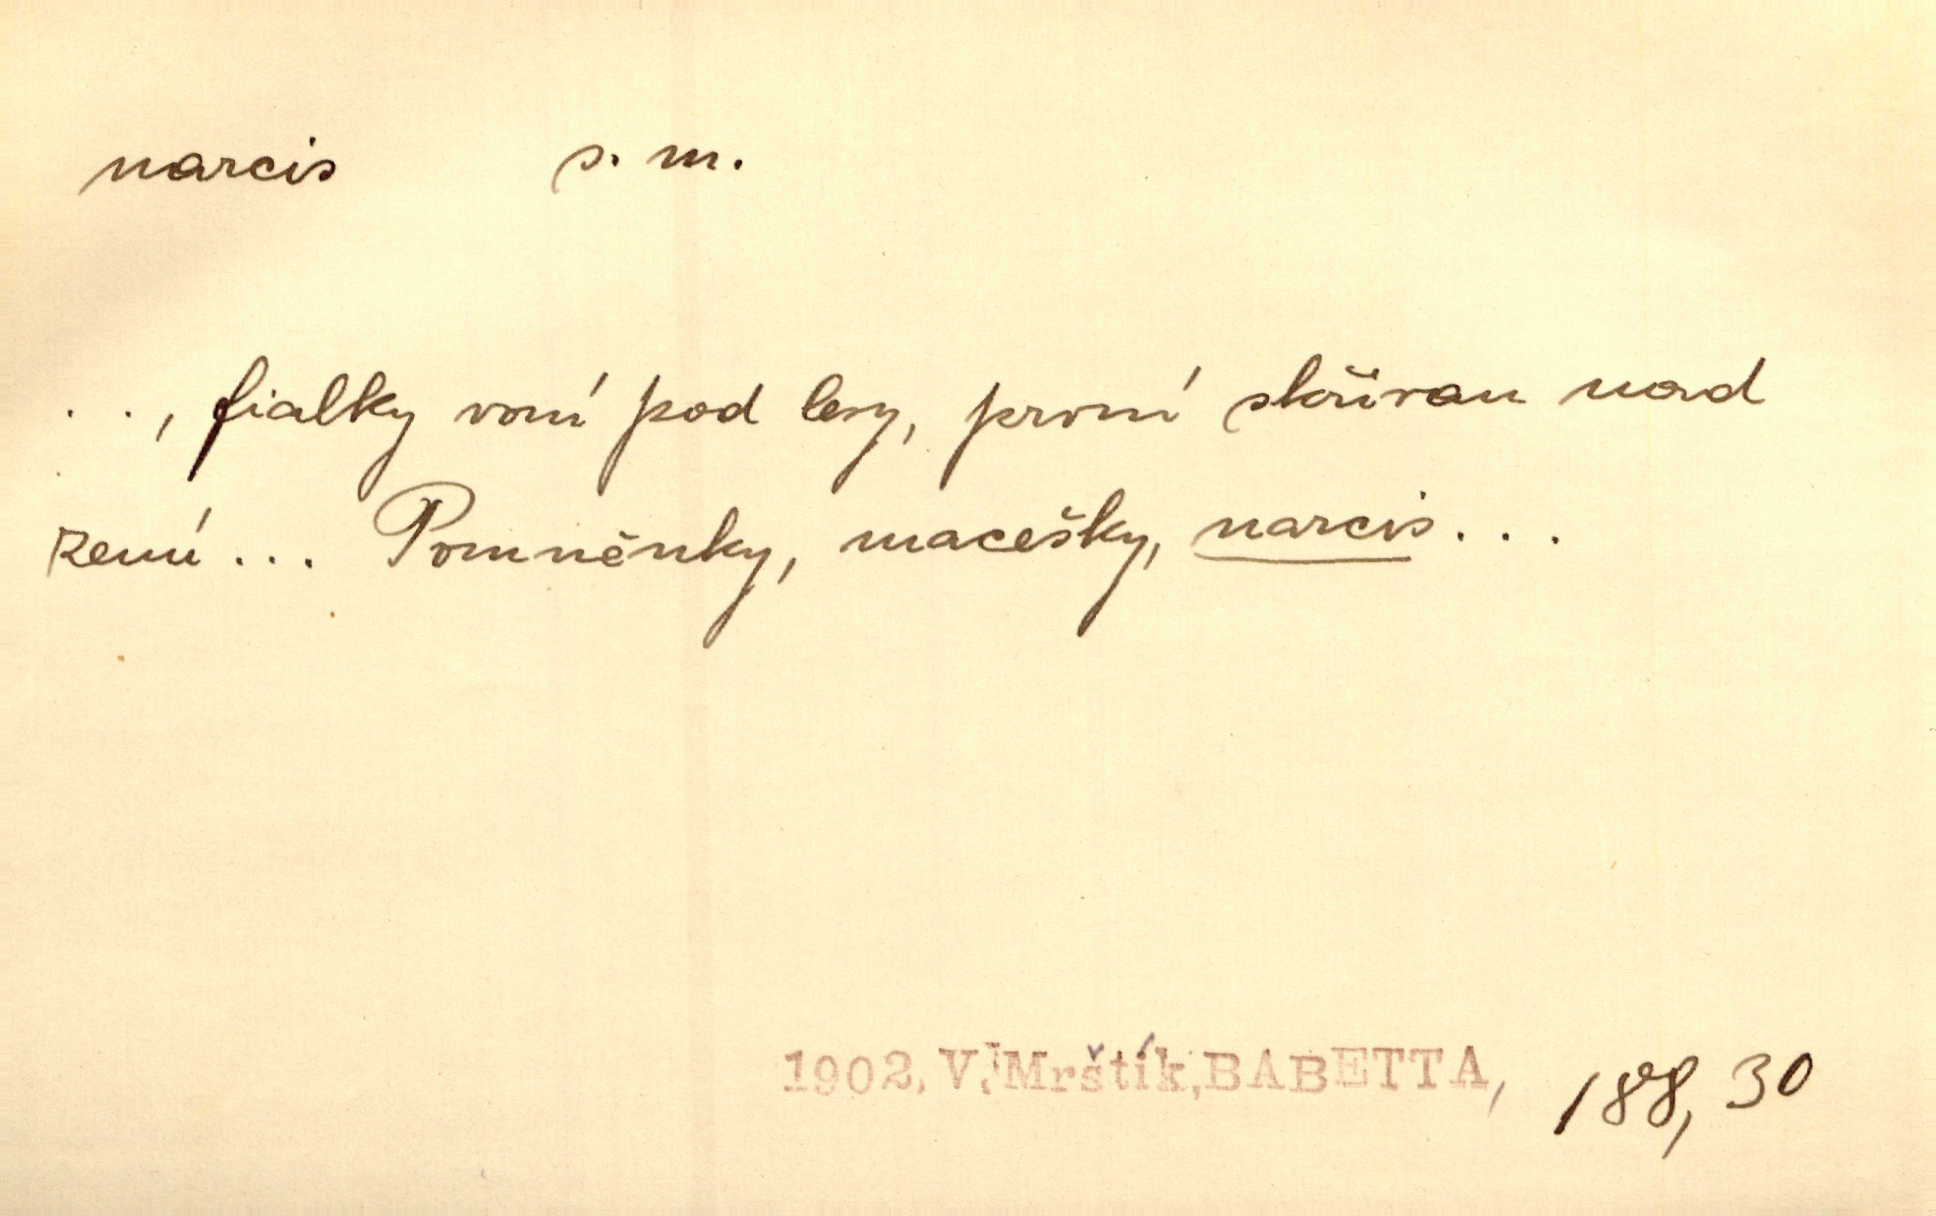 narcis s. m.
. . , fialky voní pod lesy, první skřivan nad
zemí... Pomněnky, macešky, narcis...
1902, V. Mrštík, BABETTA, 188, 30